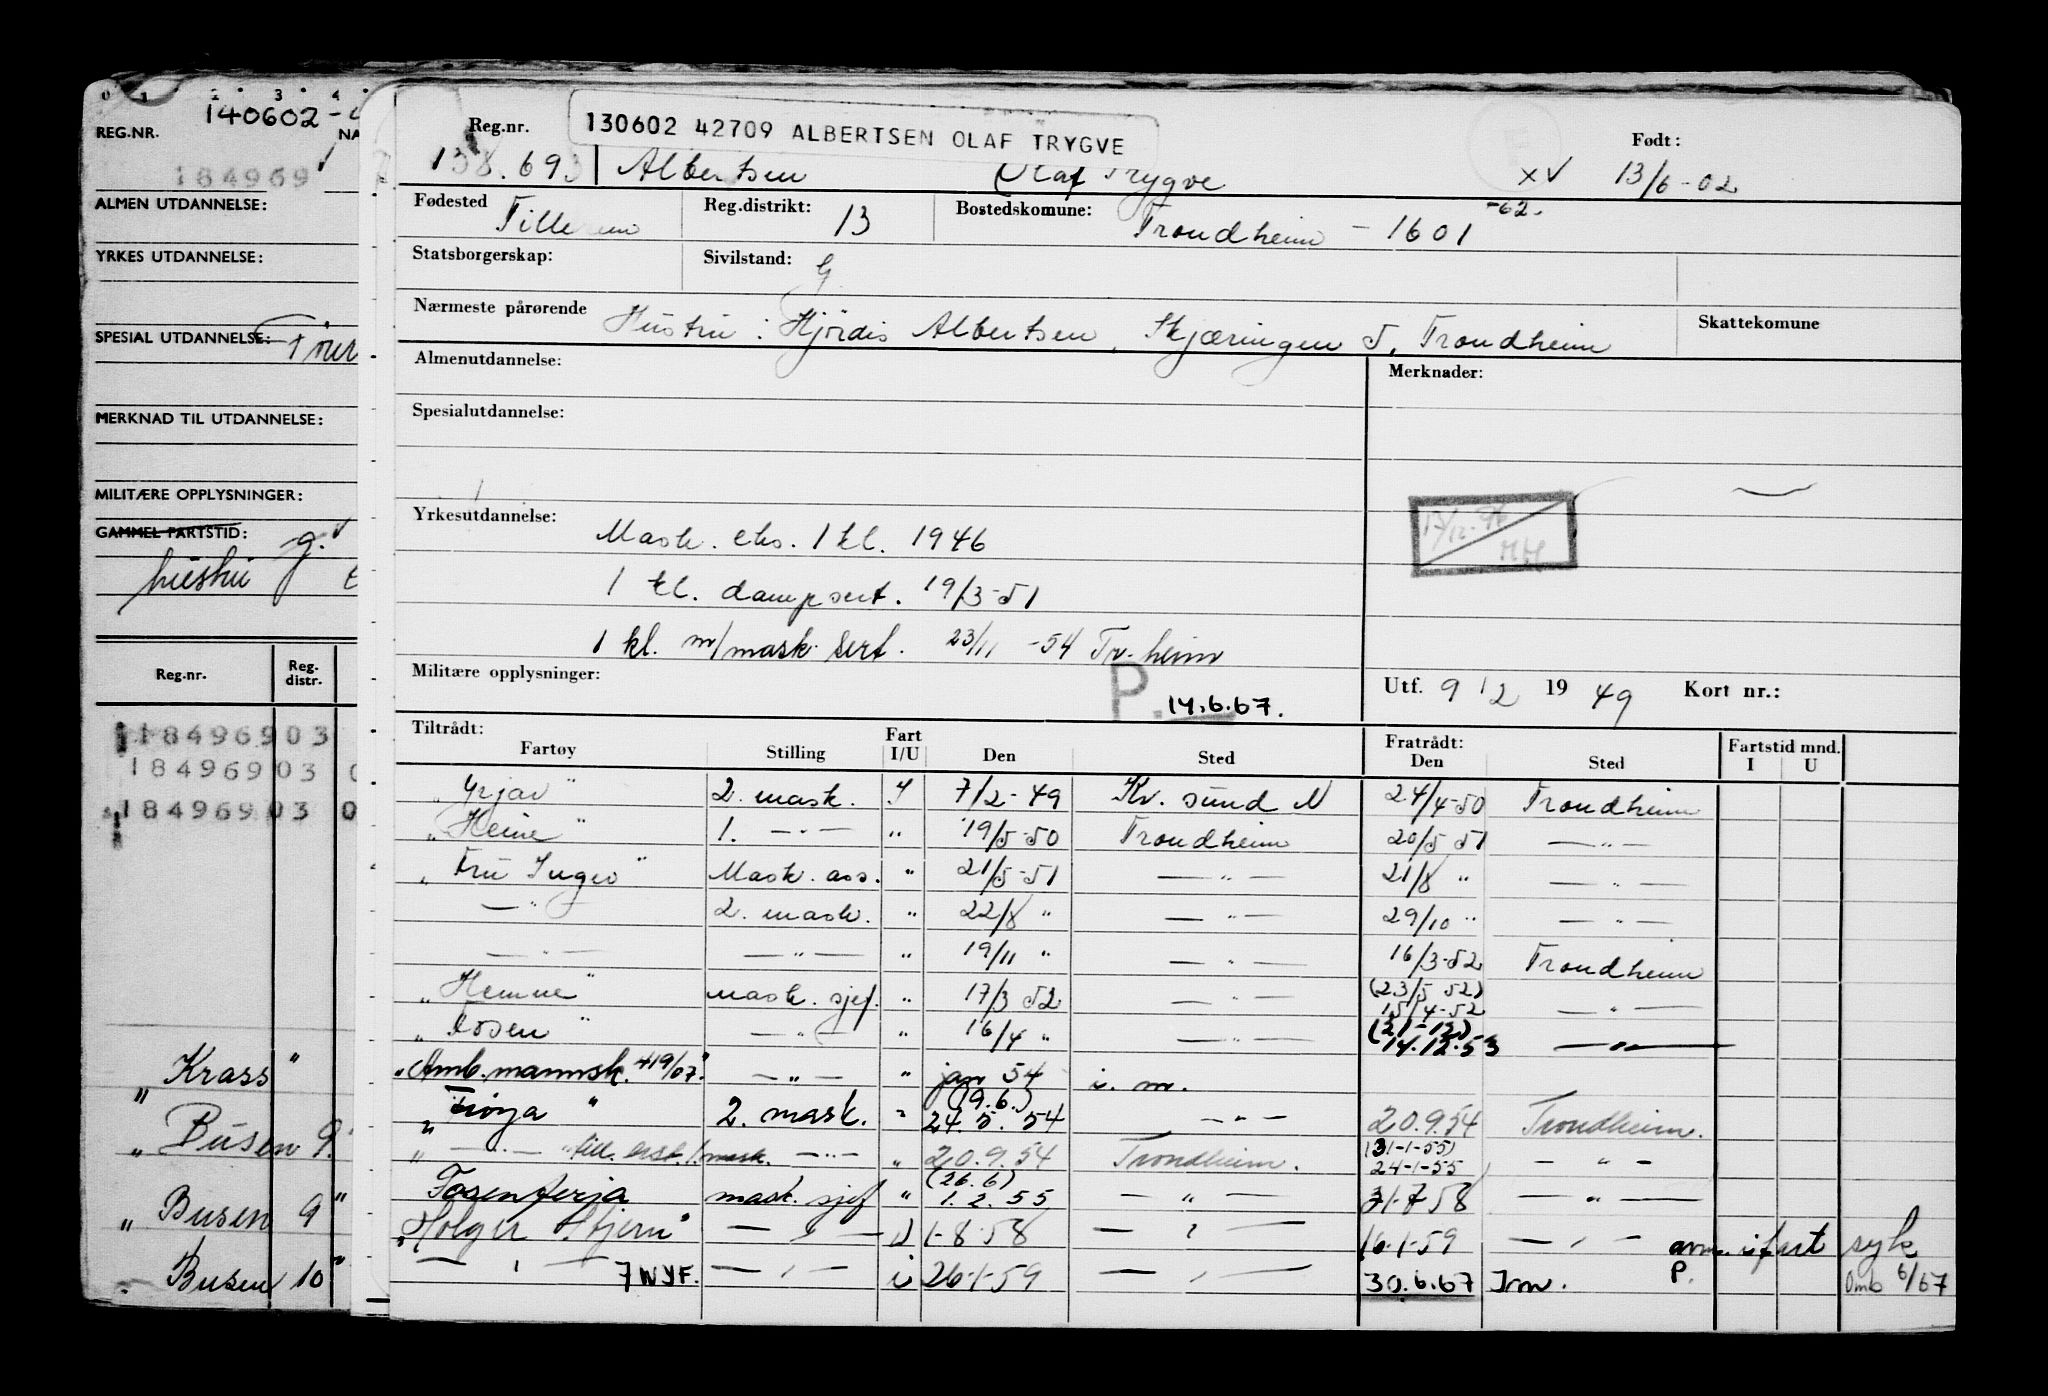 0 1 2 3 4
140602-
REG.NR. NA
184969
ALMEN UTDANNELSE:
YRKES UTDANNELSE:
SPESIAL UTDANNELSE:
MERKNAD TIL UTDANNELSE:
MILITÆRE OPPLYSNINGER:
GAMMEL FARTSTID: g.
hustru
Reg.nr. Reg. distr.
184969 03
184969 03 0
184969 03 0
"Krass"
"Busen 9"
"Busen 9"
"Busen 10"
Reg.nr. 130602 42709 ALBERTSEN OLAF TRYGVE Født:
138.693 Albertsen Olaf Trygve XV 13/6-02
Fødested Tillerem Reg.distrikt: 13 Bostedskomune: Trondheim - 1601 -62.
Statsborgerskap: Sivilstand: G
Nærmeste pårørende Hustru: Hjördis Albertsen, Skjæringen 5, Trondheim Skattekomune
Almenutdannelse: Merknader:
Spesialutdannelse:
17/12-
MH
Yrkesutdannelse: Mask. eks. 1 kl. 1946
1 kl. dampsert. 19/3-51
1 kl. m/mask. sert. 23/11 -54 Tr.heim
Militære opplysninger: P. 14.6.67. Utf. 9/2 1949 Kort nr.:
Tiltrådt: Fart Fratrådt: Fartstid mnd.
Fartøy Stilling I/U Den Sted Den Sted I U
"Yrjar" 2. mask. I 7/2-49 Kr. sund N 24/4-50 Trondheim
"Heine" 1. —"— " 19/5-50 Trondheim 20/5-51 —"—
"Fru Inger" Mask. ass. " 21/5-51 —"— 21/8 " —"—
—"— 2. mask. " 22/8 " —"— 29/10 " —"—
—"— —"— " 19/11 " —"— 16/3-52 Trondheim
"Hemne" mask. sjef. " 17/3 52 —"— (23/5 52) 15/4-52 —"—
"Fosen" —"— " 16/4 " —"— (21-12) 14.12.53 —"—
"Amb. mannsk. 419/07" —"— " jan 54 i. m.
"Frøya" 2. mask. " (9.6.) 24.5.54 —"— 20.9.54 Trondheim.
"—"— till. erst. 1. mask. —"— " 20.9.54 Trondheim. (31-1-55) 24-1-55 —"—
Fosenferja mask. sjef " (26.6) 1.2.55 —"— 31.7 58 —"—
"Holger Stjern" —"— U 1-8-58 —"— 16.1.59 —"— avm. i fart syk
—"— 7 WYF. —"— i 26-1-59 —"— 30.6.67 Tron. P. Omb 6/67